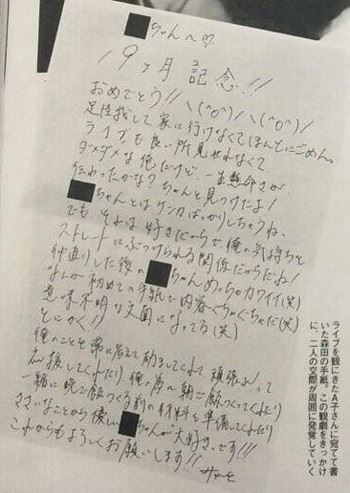 ■ちゃんへ♡
19ヶ月記念!!
おめでとう!!\(^o^)/\(^o^)/
足怪我して家に行けなくてほんとにごめん。
ライブも良い所見せれなくて
ダメダメな俺だけど、一生懸命さが、
伝わったかな?ちゃんと見つけたよ!
■ちゃんとはケンカばっかりしちゃうね、
でも、それは好きだからで、俺の気持ちを
ストレートにぶつけられる関係だからだね!
仲直りした後の■ちゃんめっちゃカワイイ(笑)
なんか初めての手紙で内容ぐちゃぐちゃだ(笑)
意味不明な文面になってる(笑)
とにかく!!
俺のことを常に考えて
頑張るよ!って
応援してくれたり、俺の為に朝ご飯つくってくれたり
一緒に晩ご飯つくる割の材料を準備してくれたり
ささいなことから優しい■ちゃんが大好きです!!!
これからもよろしくお願いします!!
ライブを観にきたA子さんに宛てて書
いた森田の手紙。この観劇をきっかけ
に、二人の交際が周囲に発覚していく